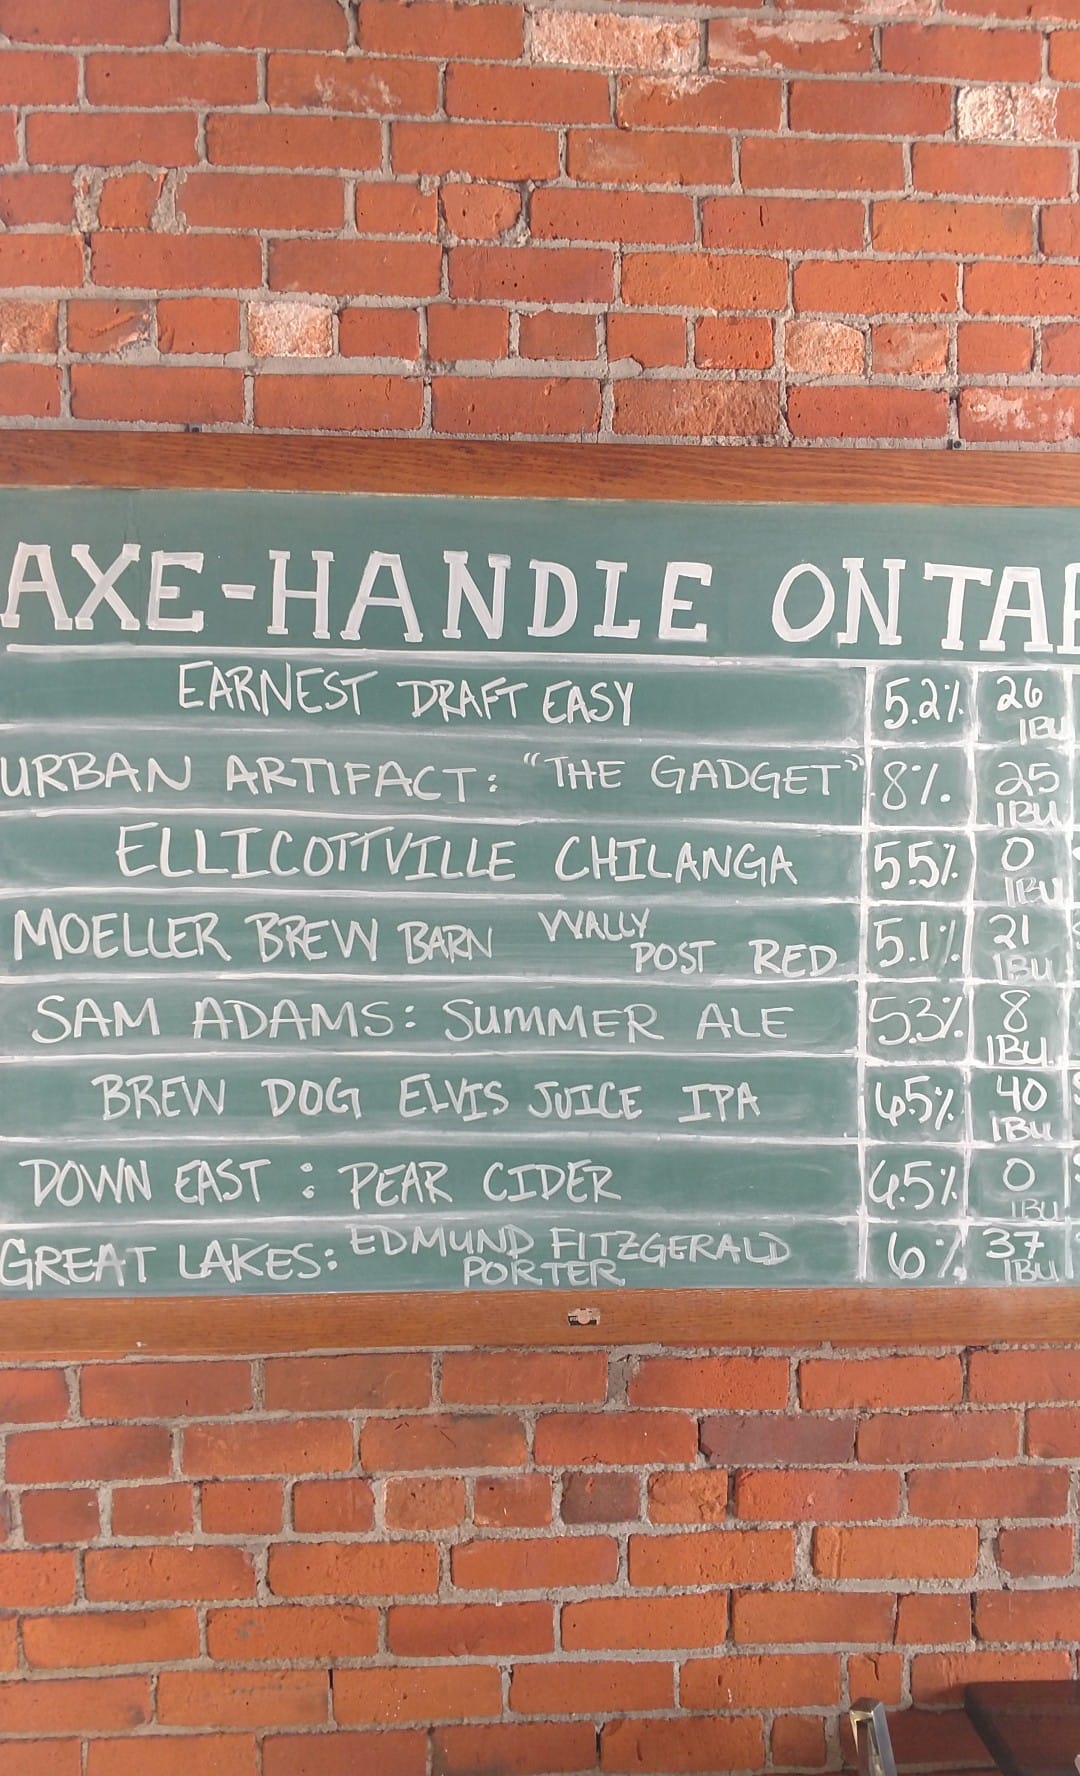 AXE-HANDLE ON TAP
EARNEST DRAFT EASY 5.2% 26 IBU
URBAN ARTIFACT: "THE GADGET" 8% 25 IBU
ELLICOTTVILLE CHILANGA 5.5% 0 IBU
MOELLER BREW BARN WALLY POST RED 5.1% 21 IBU
SAM ADAMS: SUMMER ALE 5.3% 8 IBU
BREW DOG ELVIS JUICE IPA 6.5% 40 IBU
DOWN EAST: PEAR CIDER 6.5% 0 IBU
GREAT LAKES: EDMUND FITZGERALD PORTER 6% 37 IBU